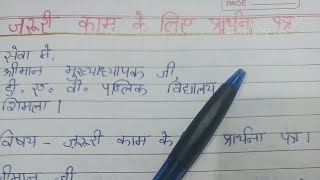 PAGE :
जरूरी काम के लिए प्रार्थना पत्र
सेवा में,
श्रीमान मुख्याध्यापक जी,
डी. ए. वी. पब्लिक विद्यालय
शिमला।
विषय - जरूरी काम के प्रार्थना पत्र।
श्रीमान जी